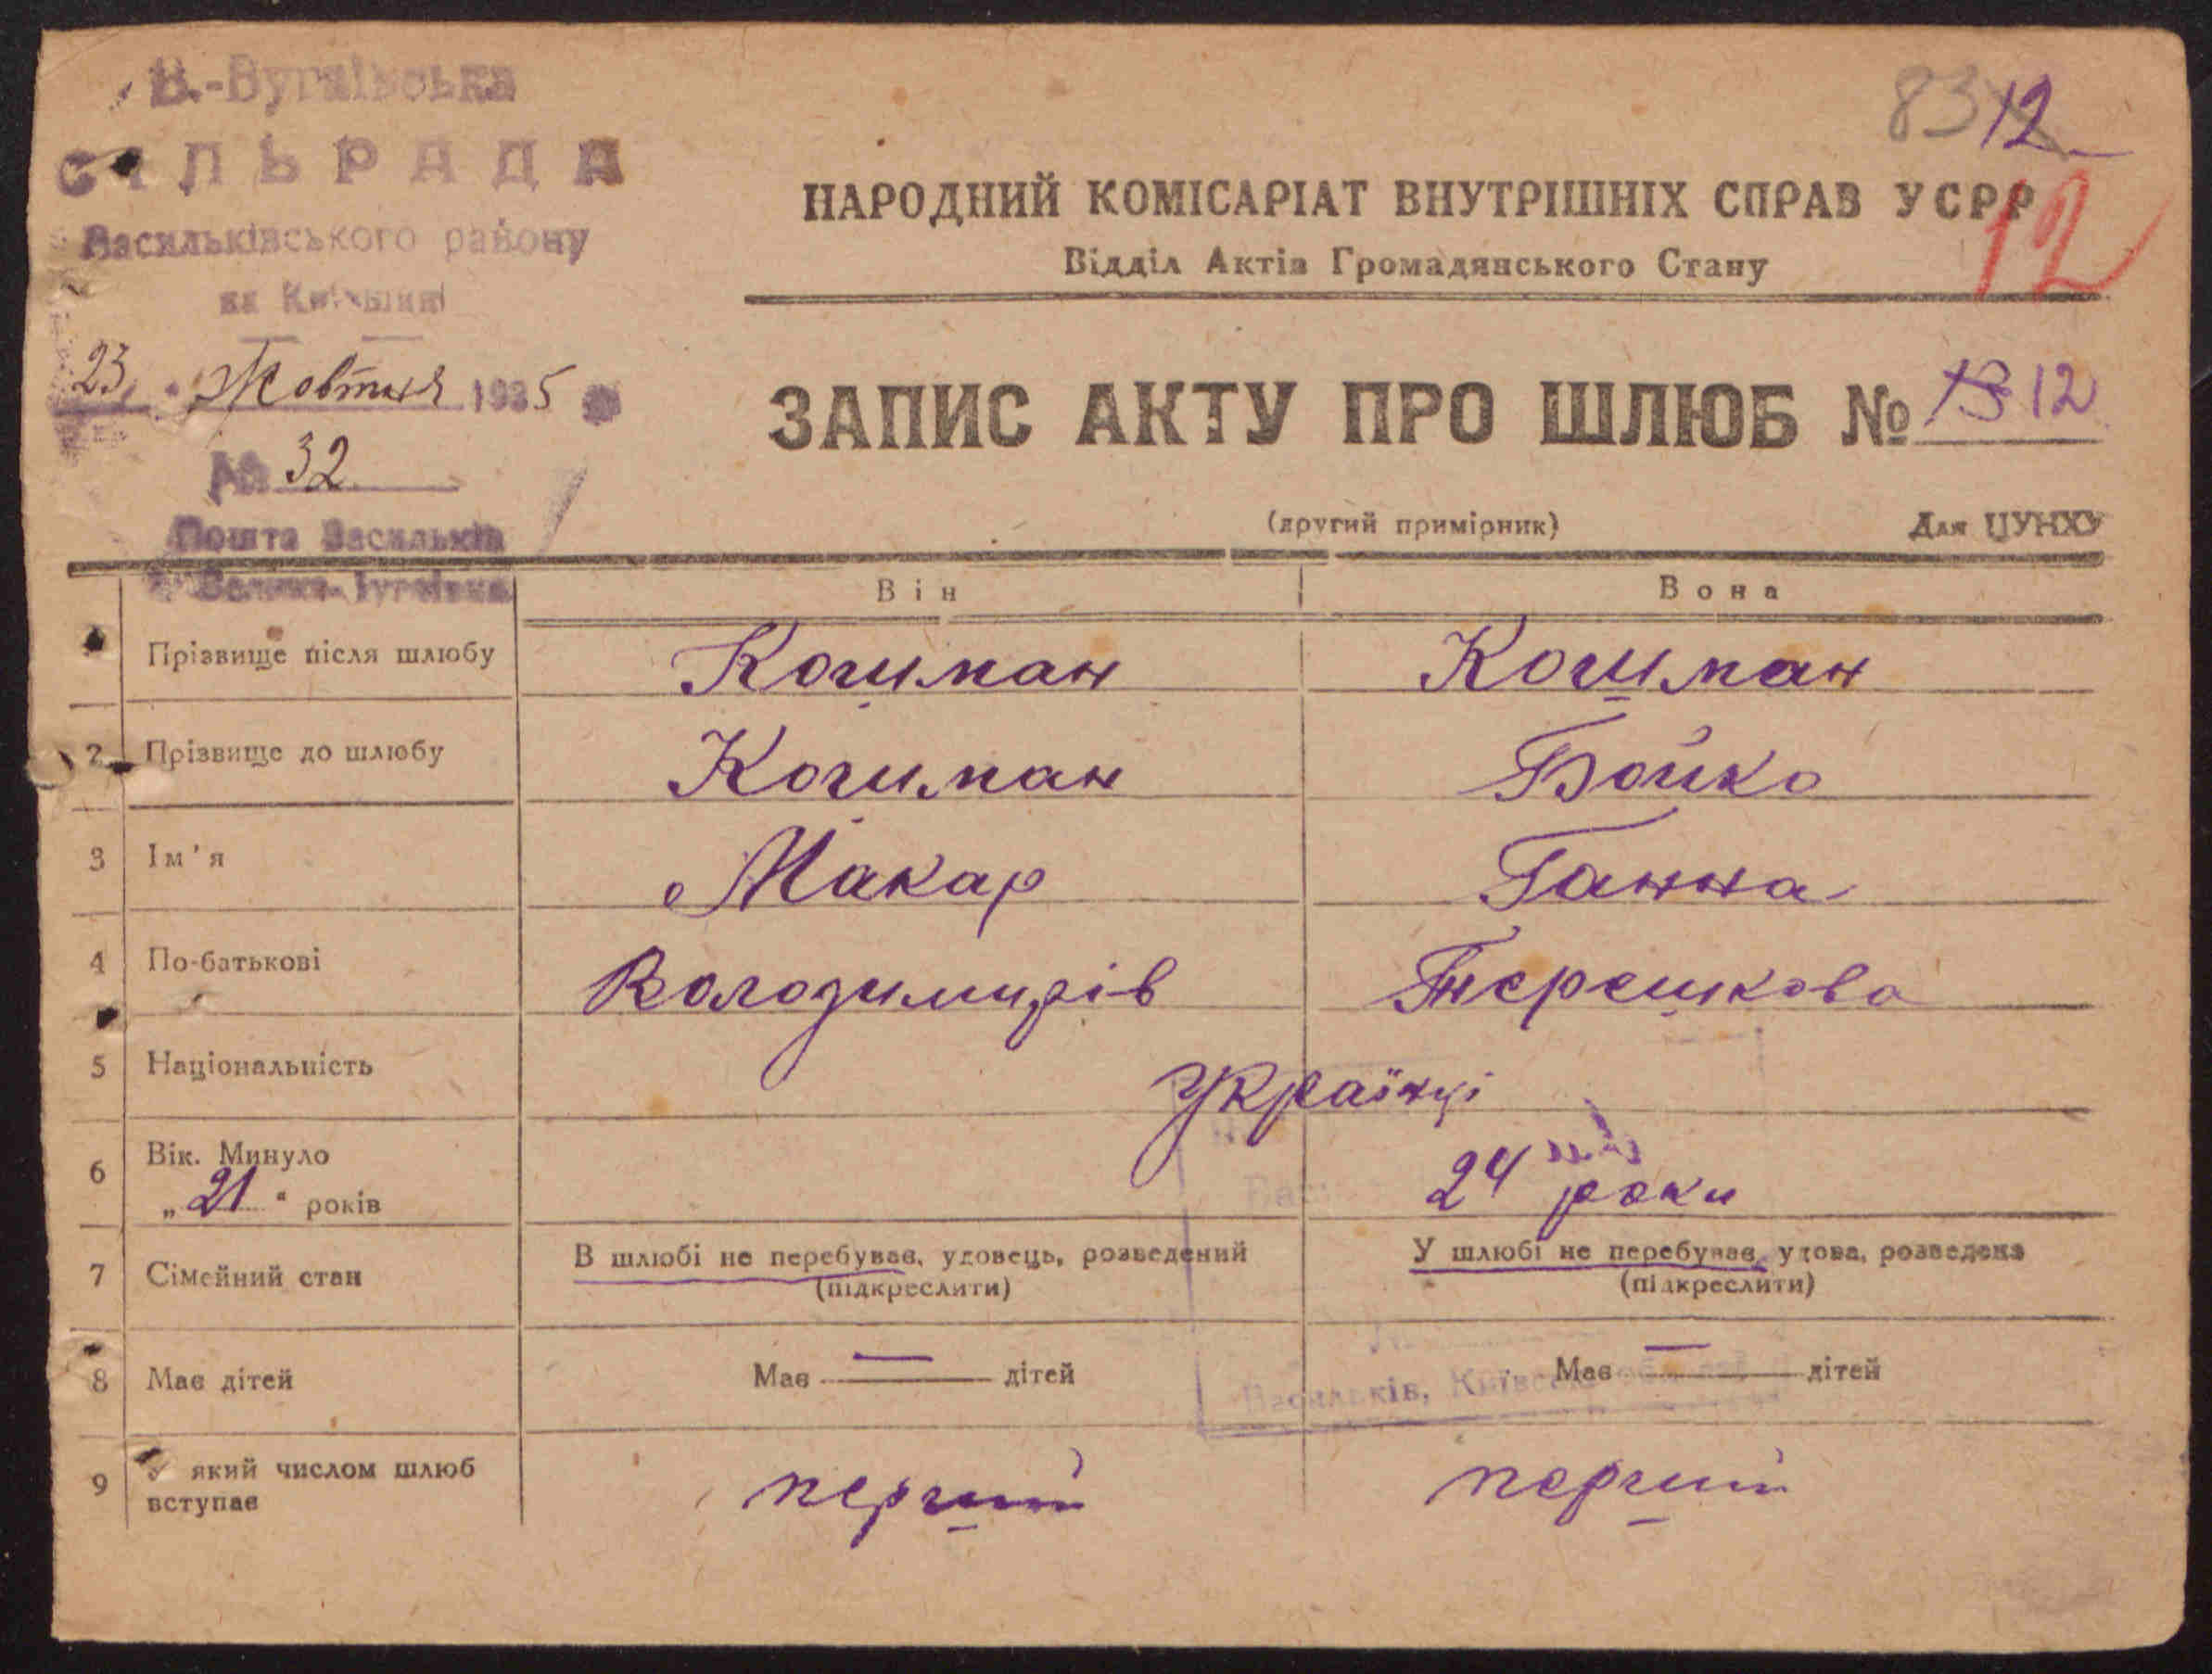 В.-Бугаївська
СІЛЬРАДА
Васильківського району
на Київщині
23 Жовтня 1935
№ 32
Пошта Васильків
83 12
12
НАРОДНИЙ КОМІСАРІАТ ВНУТРІШНІХ СПРАВ УСРР
Відділ Актів Громадянського Стану
ЗАПИС АКТУ ПРО ШЛЮБ № 13 12
(другий примірник) Для ЦУНХУ
Він Вона
1 Прізвище після шлюбу Кошман Кошман
2 Прізвище до шлюбу Кошман Бойко
3 Ім'я Макар Ганна
4 По-батькові Володимирів Терешкова
5 Національність Українці
6 Вік. Минуло
„21“ років 24 роки
7 Сімейний стан В шлюбі не перебував, удовець, розведений У шлюбі не перебував, удова, розведена
(підкреслити) (підкреслити)
8 Має дітей Має — дітей Має — дітей
Васильків,
9 який числом шлюб
вступає перший перший